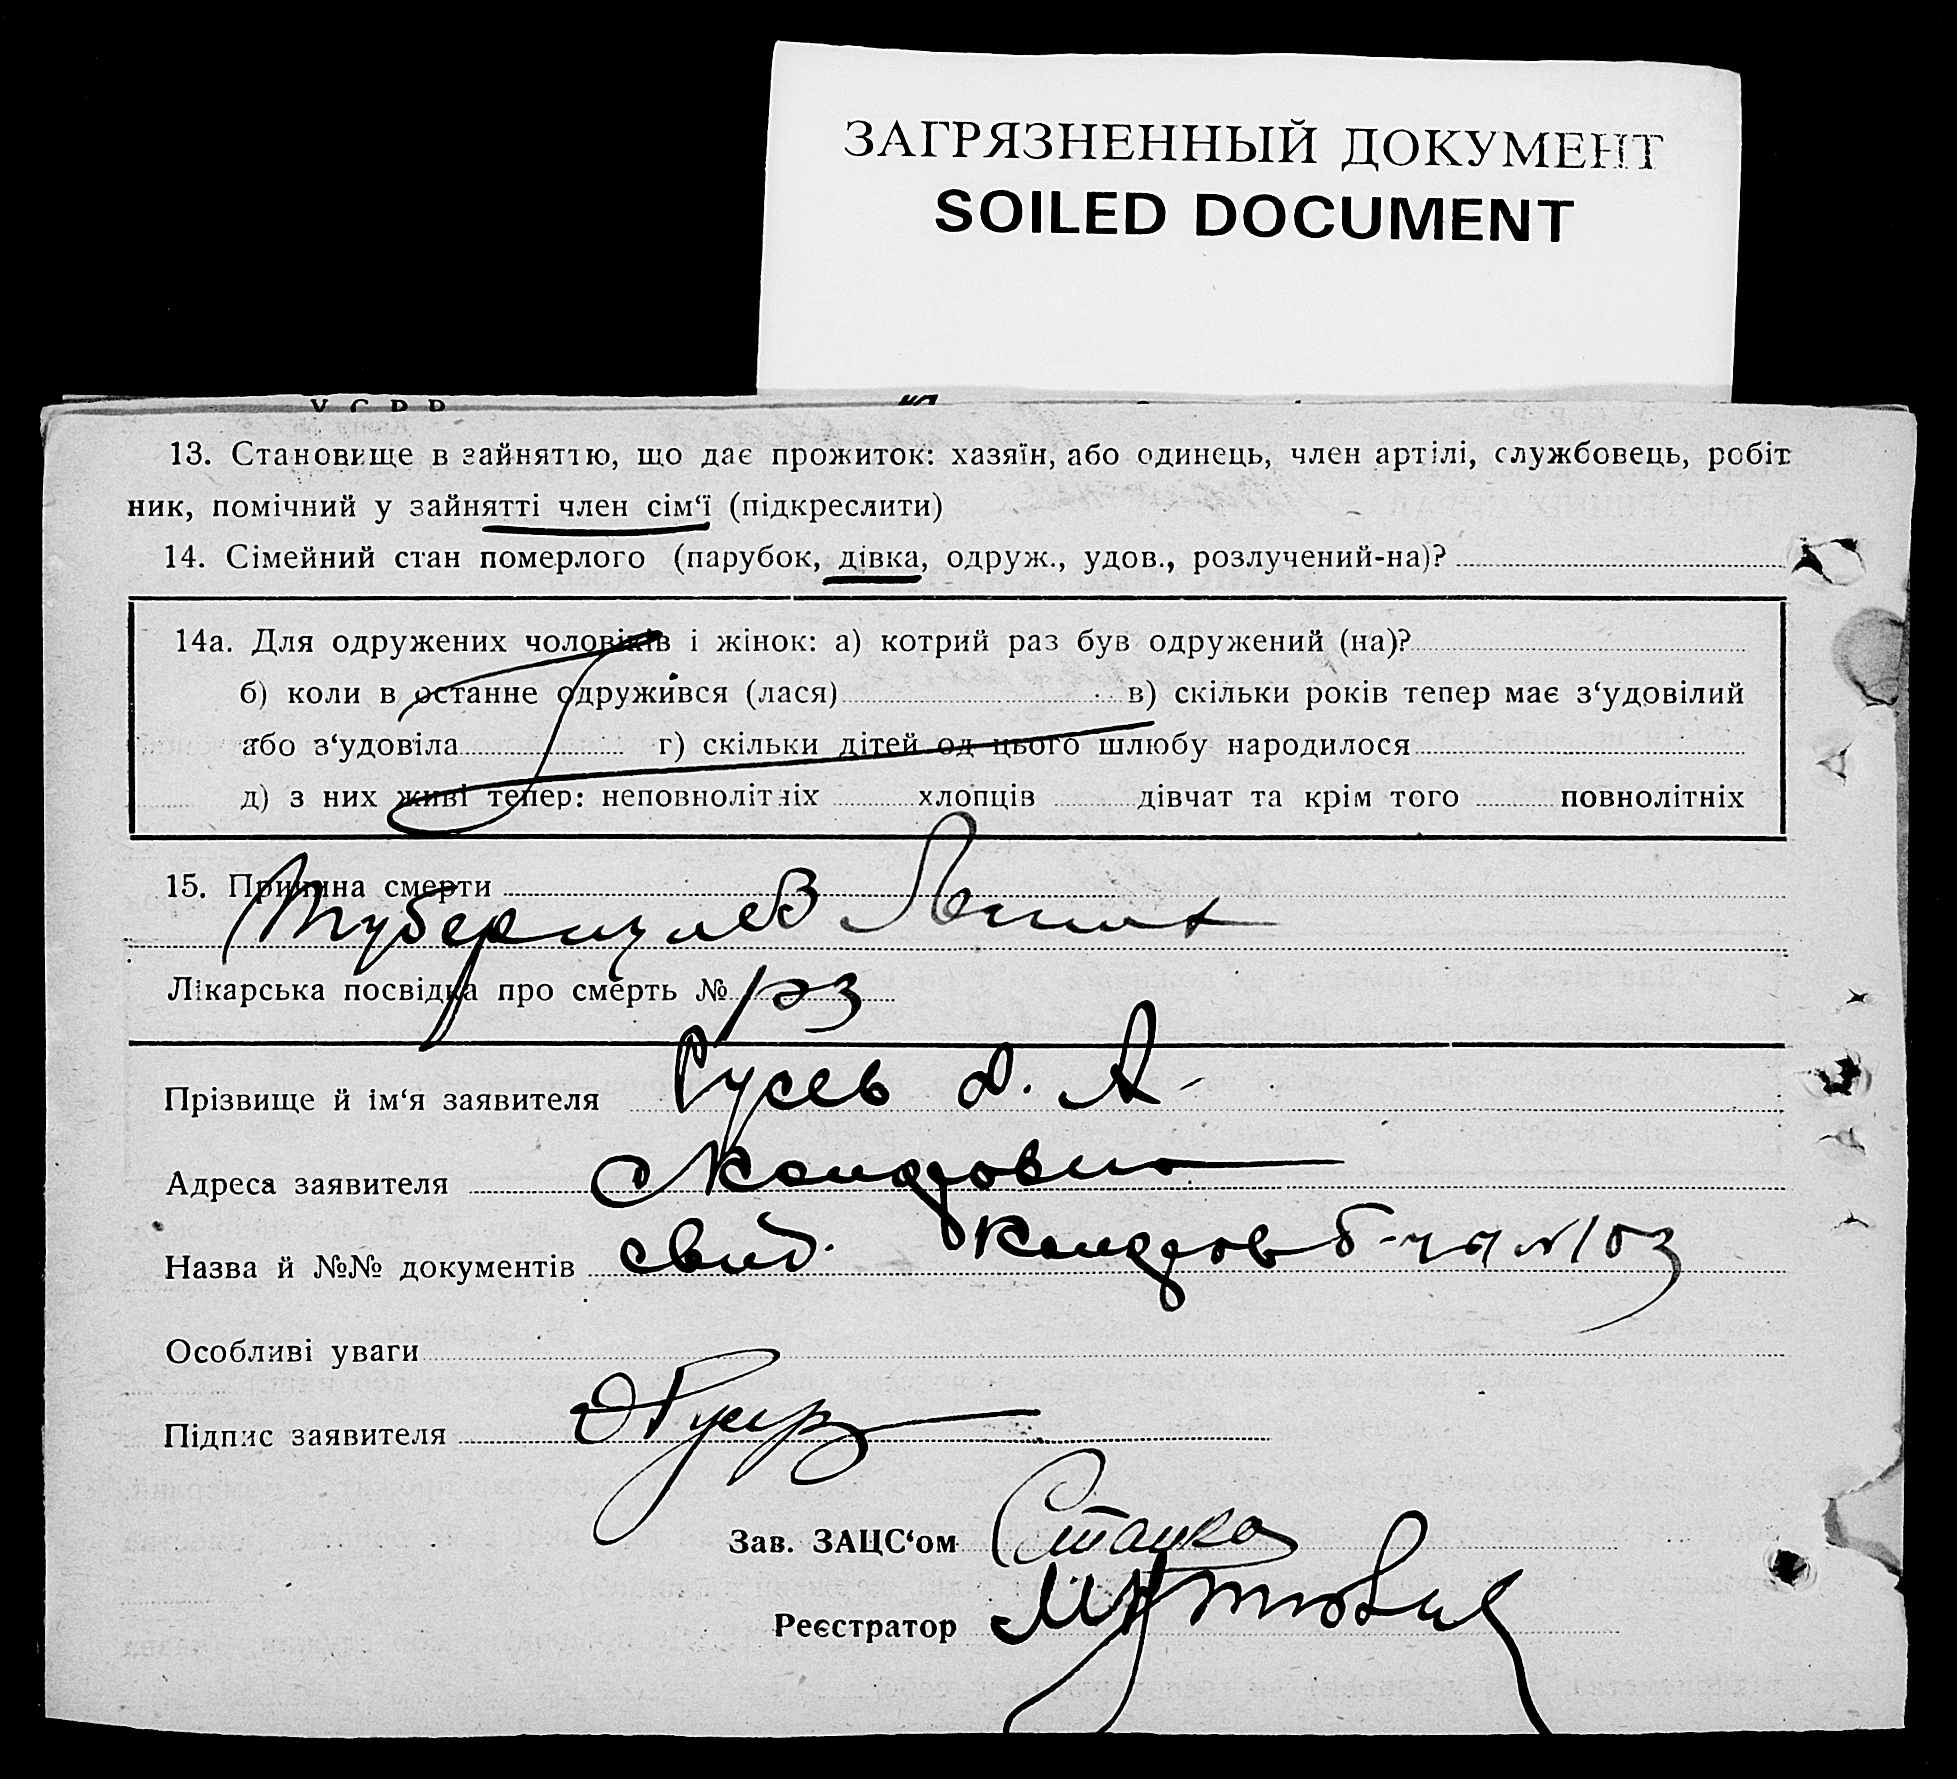 ЗАГРЯЗНЕННЫЙ ДОКУМЕНТ
SOILED DOCUMENT
У С Р Р
13. Становище в зайняттю, що дає прожиток: хазяїн, або одинець, член артілі, службовець, робіт
ник, помічний у зайнятті член сім‘ї (підкреслити)
14. Сімейний стан померлого (парубок, дівка, одруж., удов., розлучений-на)?
14а. Для одружених чоловіків і жінок: а) котрий раз був одружений (на)?
б) коли в останне одружився (лася) в) скільки років тепер має з‘удовілий
або з‘удовіла г) скільки дітей од цього шлюбу народилося
д) з них живі тепер: неповнолітніх хлопців дівчат та крім того повнолітніх
15. Причина смерти
Лікарська посвідка про смерть № 103
Прізвище й ім‘я заявителя Гусев Д. А.
Адреса заявителя
Назва й №№ документів свид. №103
Особливі уваги
Підпис заявителя
Зав. ЗАЦС‘ом
Реєстратор